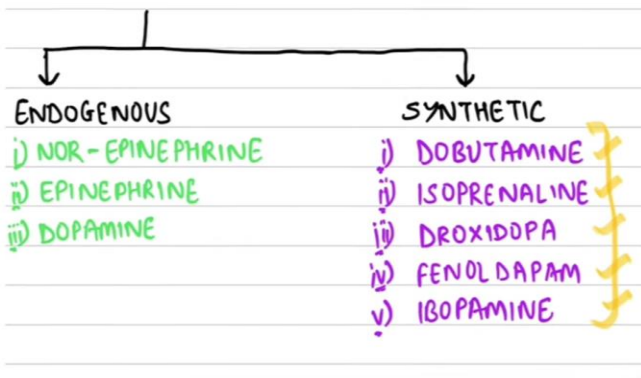 ENDOGENOUS
i) NOR-EPINEPHRINE
ii) EPINEPHRINE
iii) DOPAMINE
SYNTHETIC
i) DOBUTAMINE
ii) ISOPRENALINE
iii) DROXIDOPA
iv) FENOLDAPAM
v) IBOPAMINE